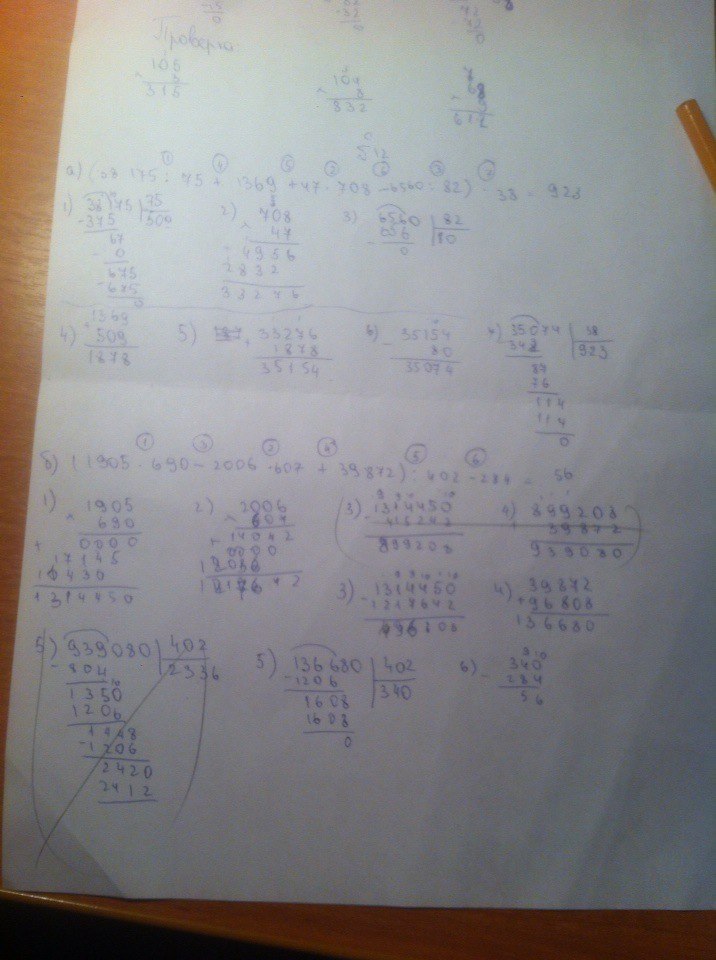 Проверка
105
315
104
832
68
612
512
а) 175 : 75 + 1369 + 47 · 708 - 6560 : 82) : 38 = 923
1) 38175 75
-375 509
67
- 0
675
- 675
0
2) 708
× 47
4956
2832
33276
3) 6560 82
- 656 80
0
4) 1369
509
1878
5) 33276
1878
35154
6) 35154
- 80
35074
7) 35074 38
342 923
87
76
114
114
0
б) (1905 · 690 - 2006 · 607 + 39872) : 402 - 284 = 56
1) 1905
× 690
+ 0000
17145
11430
1314450
2) 2006
× 607
+ 14042
0000
3) 1314450
- 415242
899208
4) 899208
+ 39872
939080
3) 1314450
- 1217642
4) 39872
+ 96808
136680
5) 939080 402
- 804 2336
1350
1206
1448
- 1206
2420
2412
5) 136680 402
- 1206 340
1608
1608
0
6) 340
- 284
56